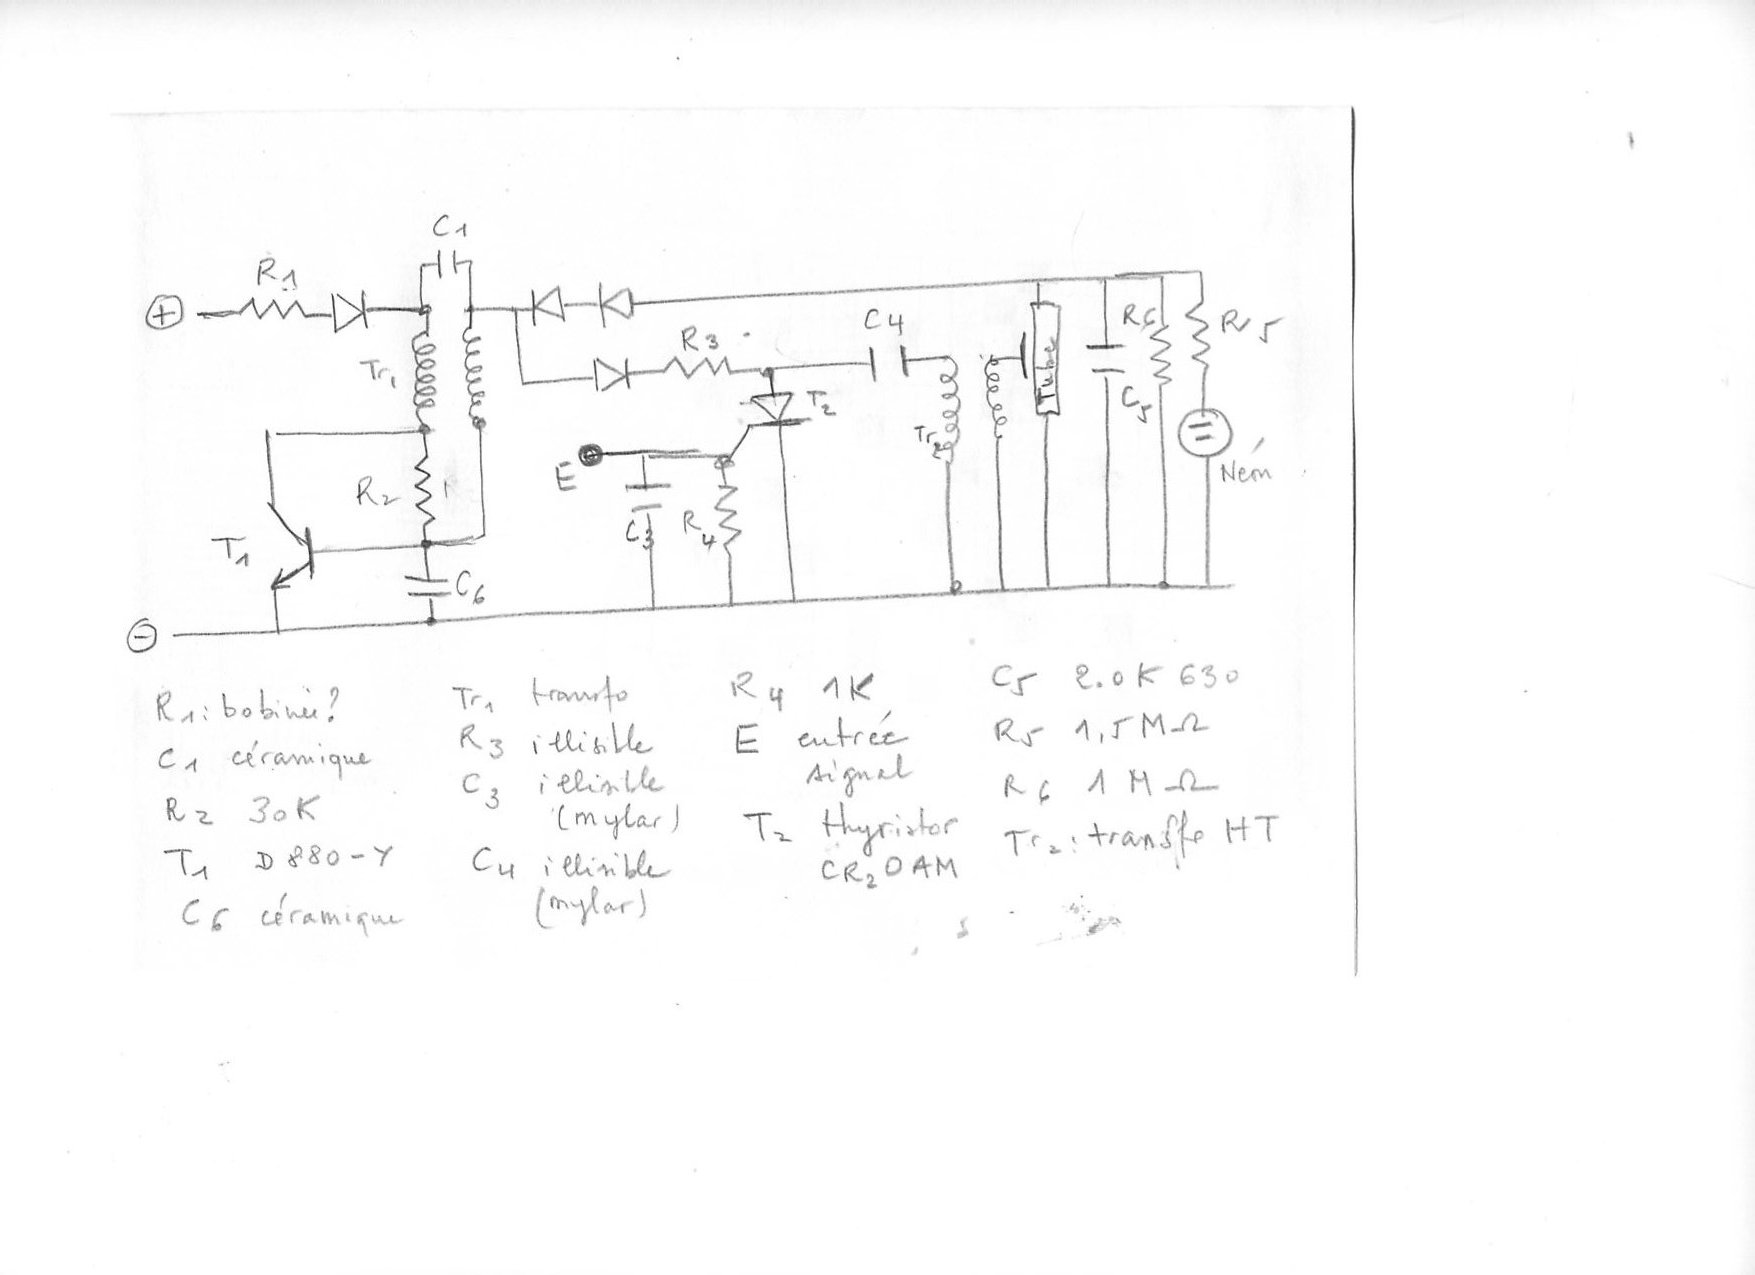 C1
R1
⊕
Tr1
R3
C4
R6
R5
Tube
C5
T2
Tr2
E
Néon
R2
C3
R4
T1
C6
⊖
R1: bobinée?
C1 céramique
R2 30K
T1 D880-Y
C6 céramique
Tr1 transfo
R3 illisible
C3 illisible
(mylar)
C4 illisible
(mylar)
R4 1K
E entrée
signal
T2 thyristor
CR20AM
C5 2.0K 630
R5 1,5MΩ
R6 1MΩ
Tr2: transfo HT